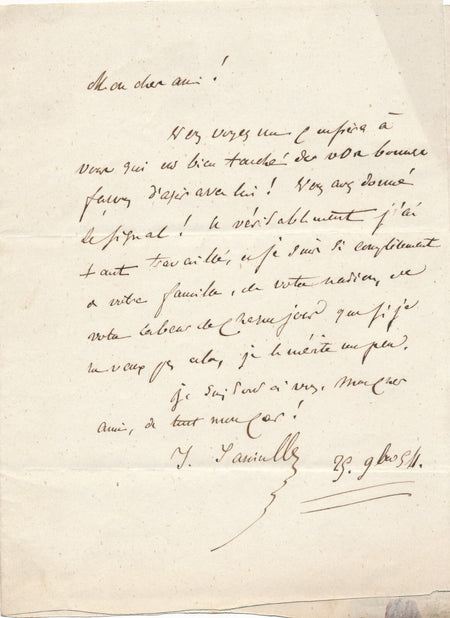 Mon cher ami !
Vous voyez un confrère à
vous qui est bien touché de vos bonnes
façons d'agir avec lui ! Vous avez donné
le signal ! & véritablement j'ai
tant travaillé, et je suis si complètement
de votre famille, de votre maison, de
votre labeur de chaque jour que si je
ne veux pas cela, je le mérite un peu.
je suis tout à vous, mon cher
ami, de tout mon cœur !
J. Janin
25. 9bre 54.